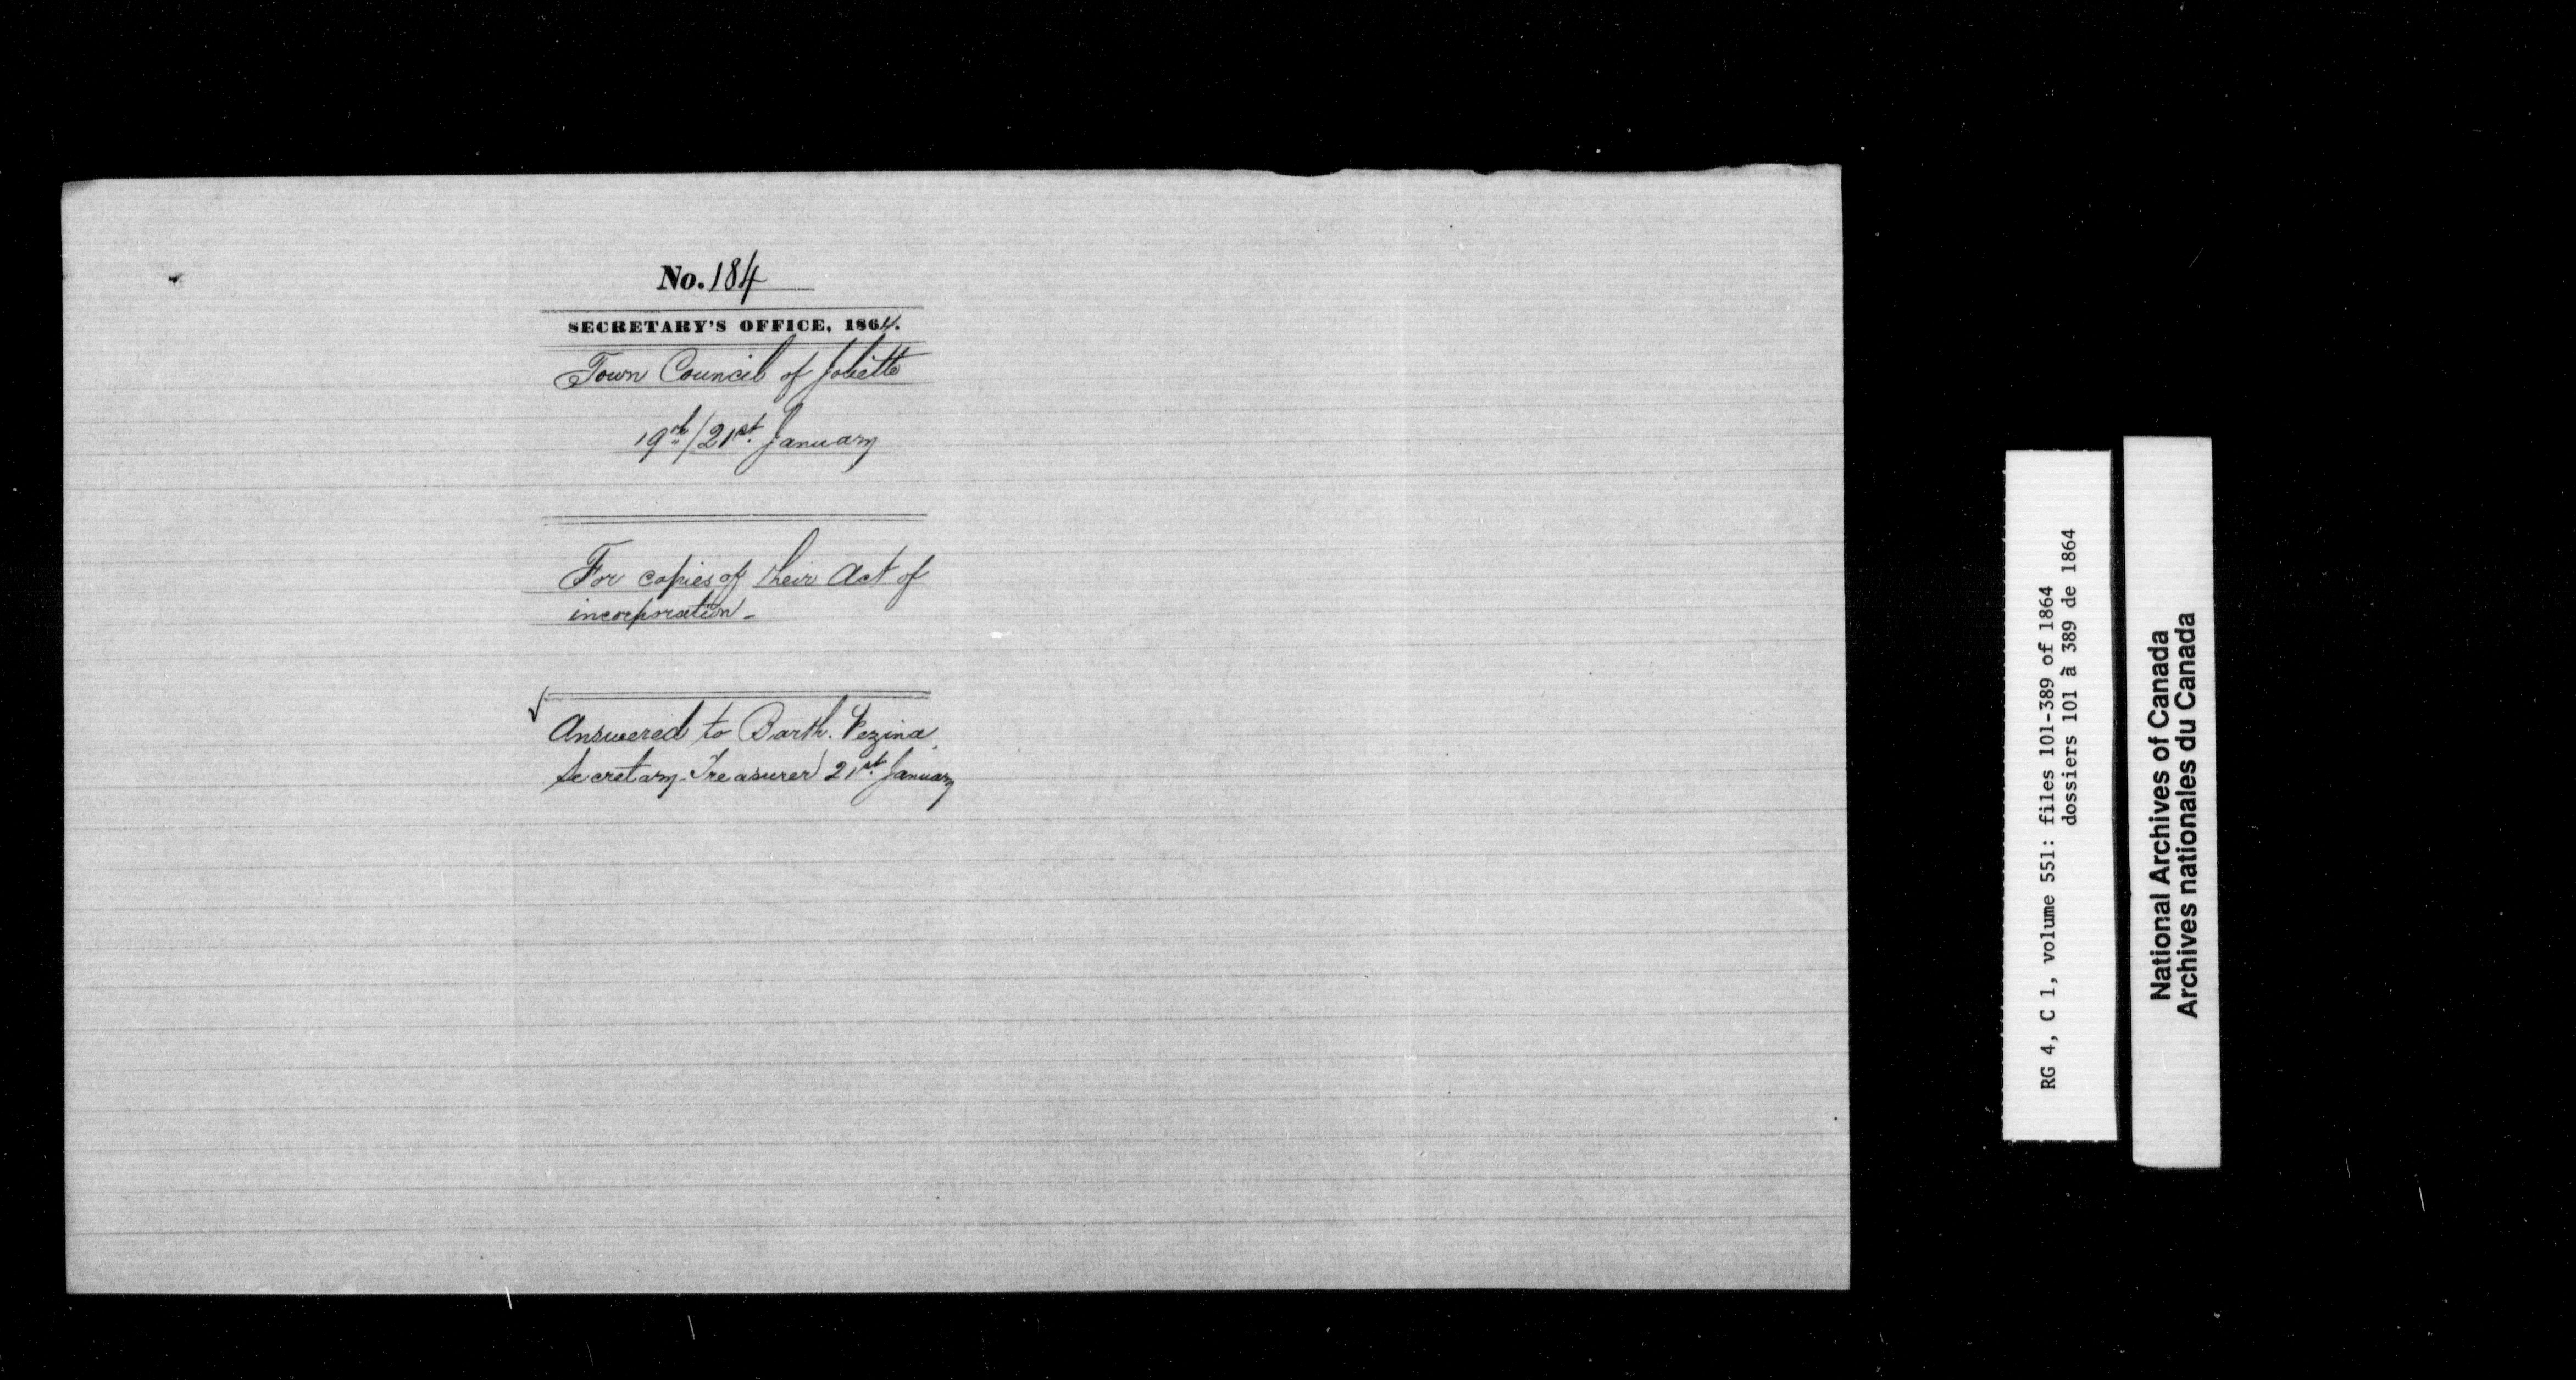 No. 184
SECRETARY'S OFFICE, 1864.
Town Council of Joliette
19th/21st January
For copies of their Act of
incorporation -
✓
Answered to Barth. Vezina
Secretary-Treasurer 21st January
RG 4, C 1, volume 551: files 101-389 of 1864
dossiers 101 à 389 de 1864
National Archives of Canada
Archives nationales du Canada